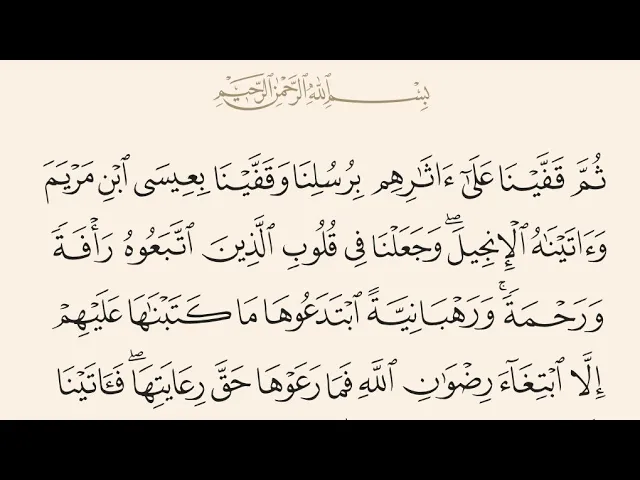 بِسْمِ ٱللَّهِ ٱلرَّحْمَٰنِ ٱلرَّحِيمِ
ثُمَّ قَفَّيْنَا عَلَىٰٓ ءَاثَٰرِهِم بِرُسُلِنَا وَقَفَّيْنَا بِعِيسَى ٱبْنِ مَرْيَمَ
وَءَاتَيْنَٰهُ ٱلْإِنجِيلَ ۖ وَجَعَلْنَا فِى قُلُوبِ ٱلَّذِينَ ٱتَّبَعُوهُ رَأْفَةً
وَرَحْمَةً ۚ وَرَهْبَانِيَّةً ٱبْتَدَعُوهَا مَا كَتَبْنَٰهَا عَلَيْهِمْ
إِلَّا ٱبْتِغَآءَ رِضْوَٰنِ ٱللَّهِ فَمَا رَعَوْهَا حَقَّ رِعَايَتِهَا ۖ فَـَٔاتَيْنَا